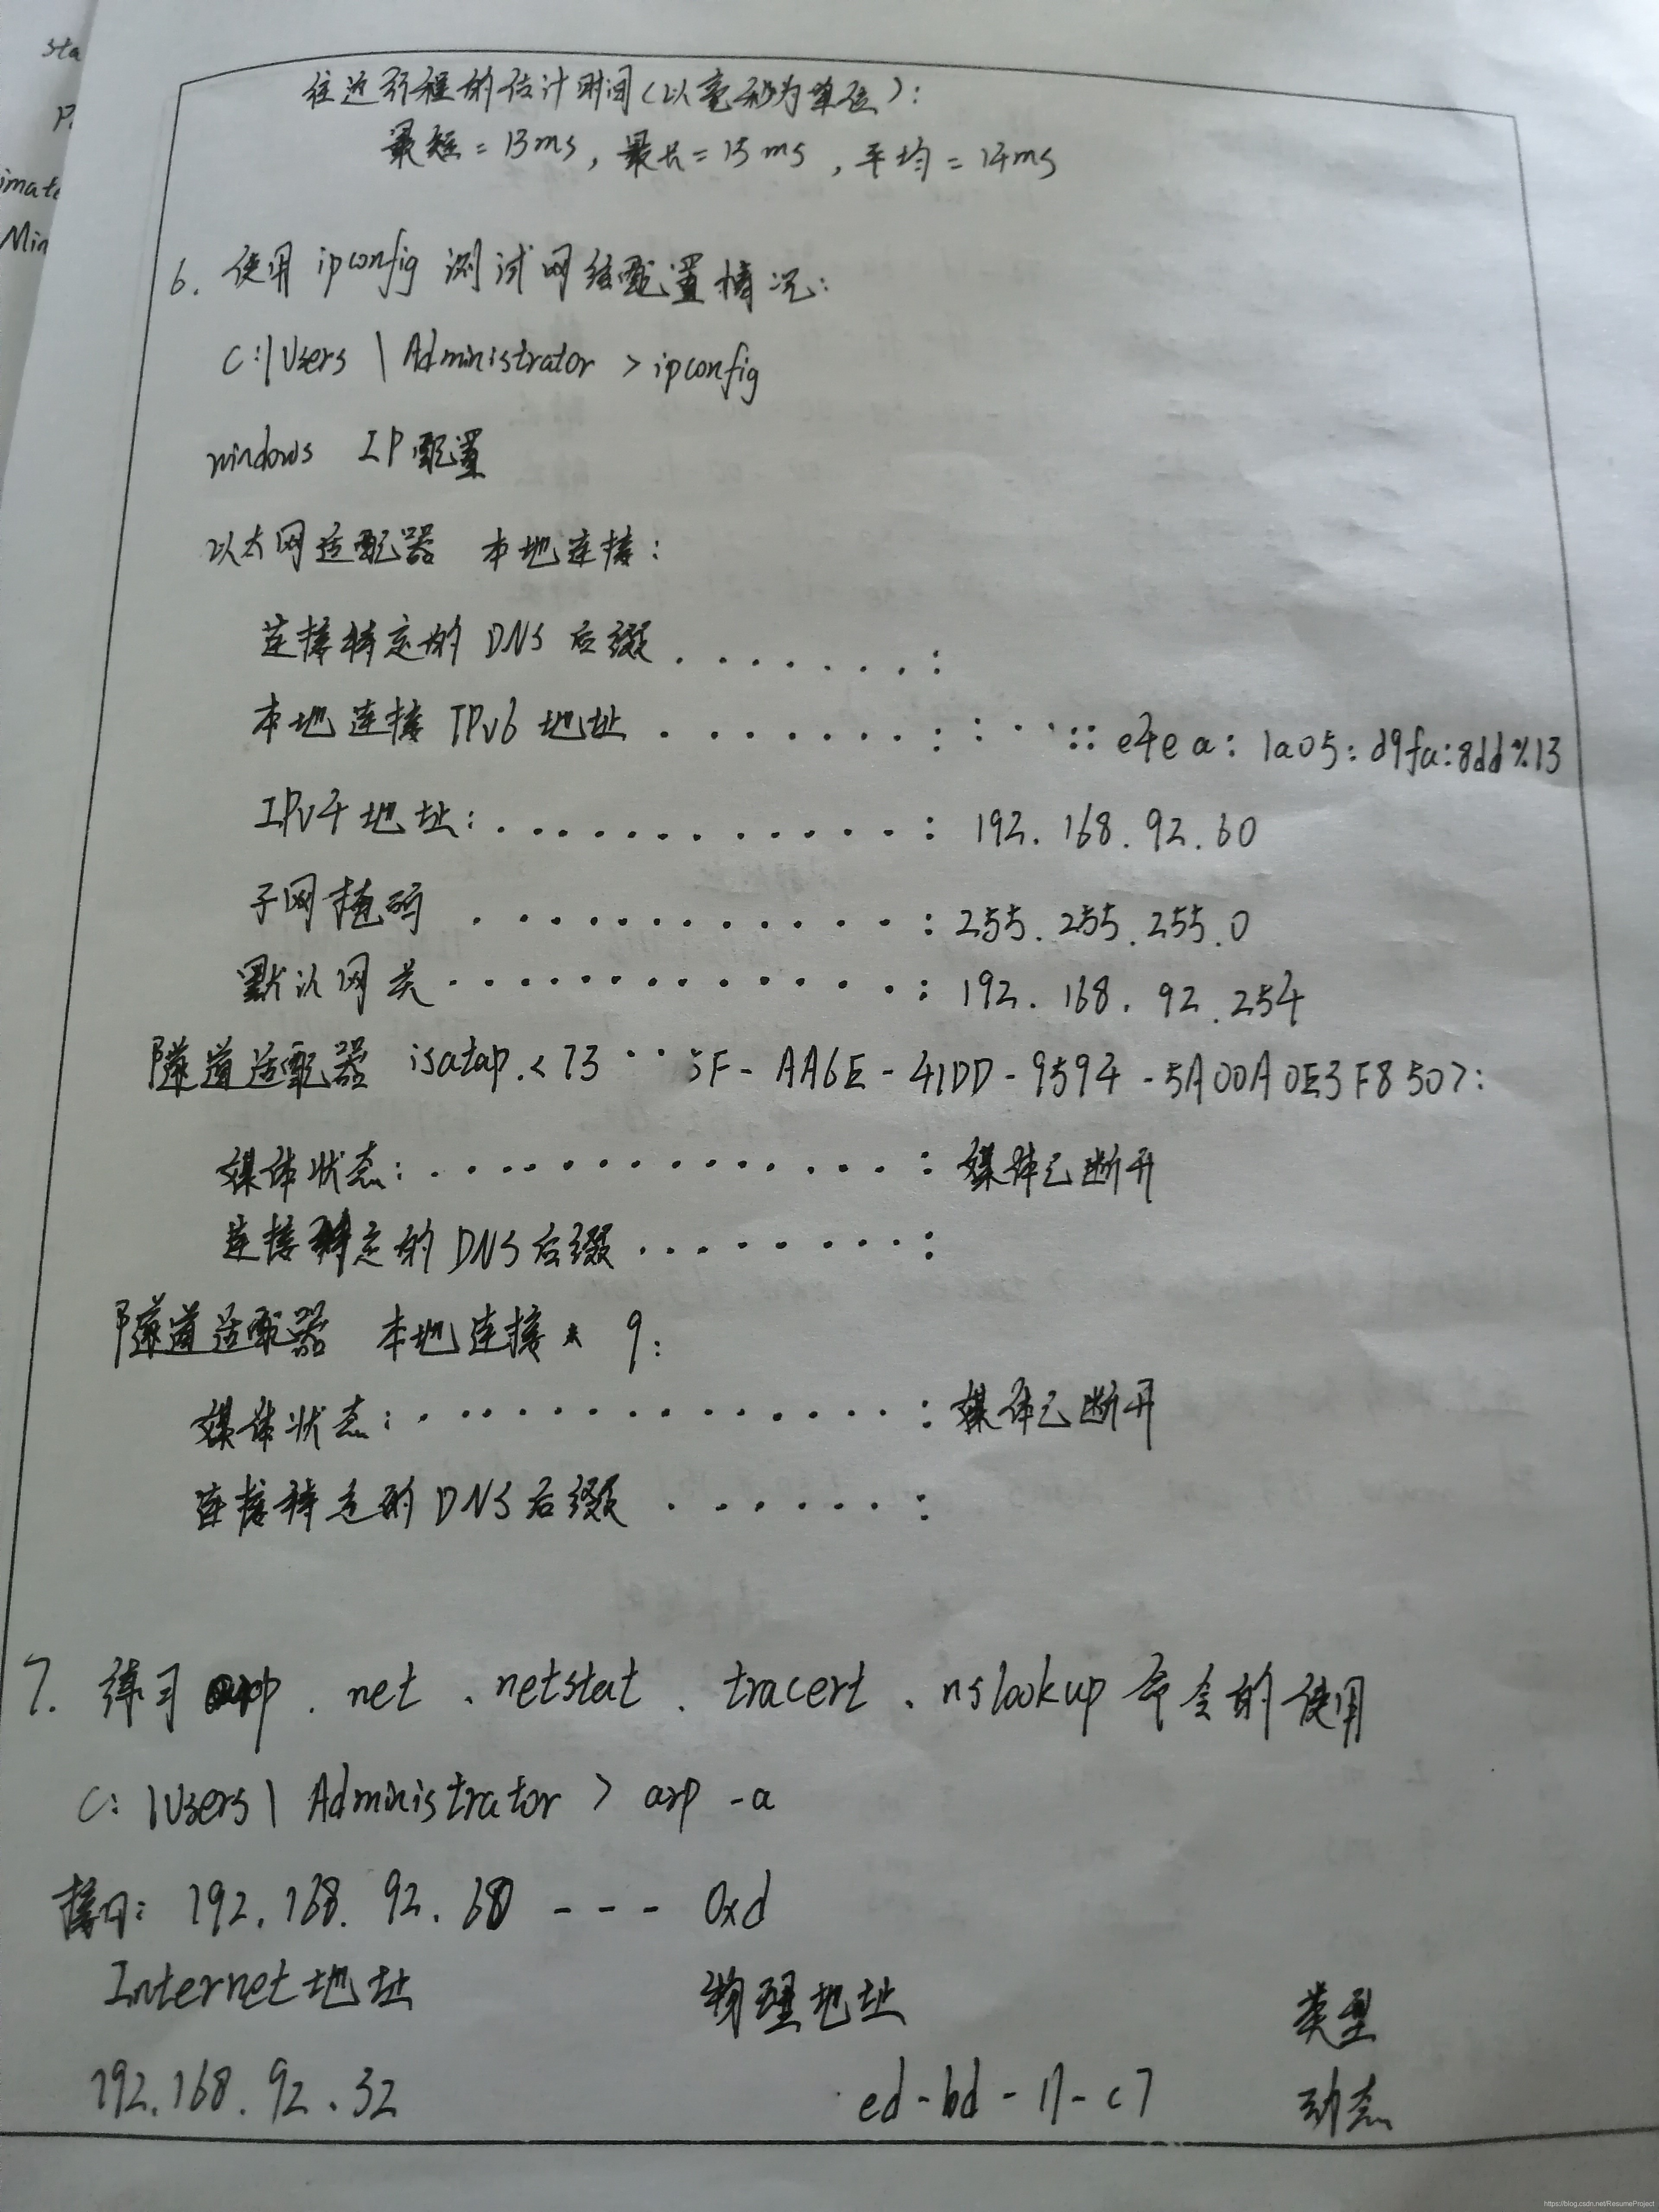 sta
P
imate
Min
往返行程的估计时间(以毫秒为单位):
最短=13ms, 最长=15ms, 平均=14ms
6. 使用 ipconfig 测试网络配置情况:
C:\Users \ Administrator > ipconfig
windows IP配置
以太网适配器 本地连接:
连接特定的 DNS 后缀 . . . . . . . :
本地连接 IPv6 地址 . . . . . . . : : · · · :: e4ea: 1a05: d9fa:8dd%13
IPv4 地址: . . . . . . . . . . . . . : 192. 168. 92. 60
子网掩码 . . . . . . . . . . . . : 255. 255. 255. 0
默认网关 . . . . . . . . . . . . . : 192. 168. 92. 254
隧道适配器 isatap.<73 · · 5F- AA6E - 41DD - 9594 - 5A00A0E3F850>:
媒体状态: . . . . . . . . . . . . . . : 媒体已断开
连接特定的 DNS后缀 . . . . . . . . . :
隧道适配器 本地连接* 9:
媒体状态: . . . . . . . . . . . . . . : 媒体已断开
连接特定的 DNS后缀 . . . . . . . :
7. 练习 arp 、net 、netstat 、tracert 、nslookup 命令的使用
C: \Users\ Administrator > arp -a
接口: 192. 168. 92. 60 --- 0xd
Internet地址 物理地址 类型
192. 168. 92. 32 ed-bd-17-c7 动态
https://blog.csdn.net/ResumeProject